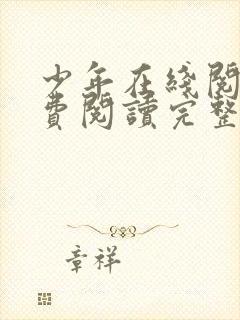 少年在綫閱
費閱讀完整
章祥